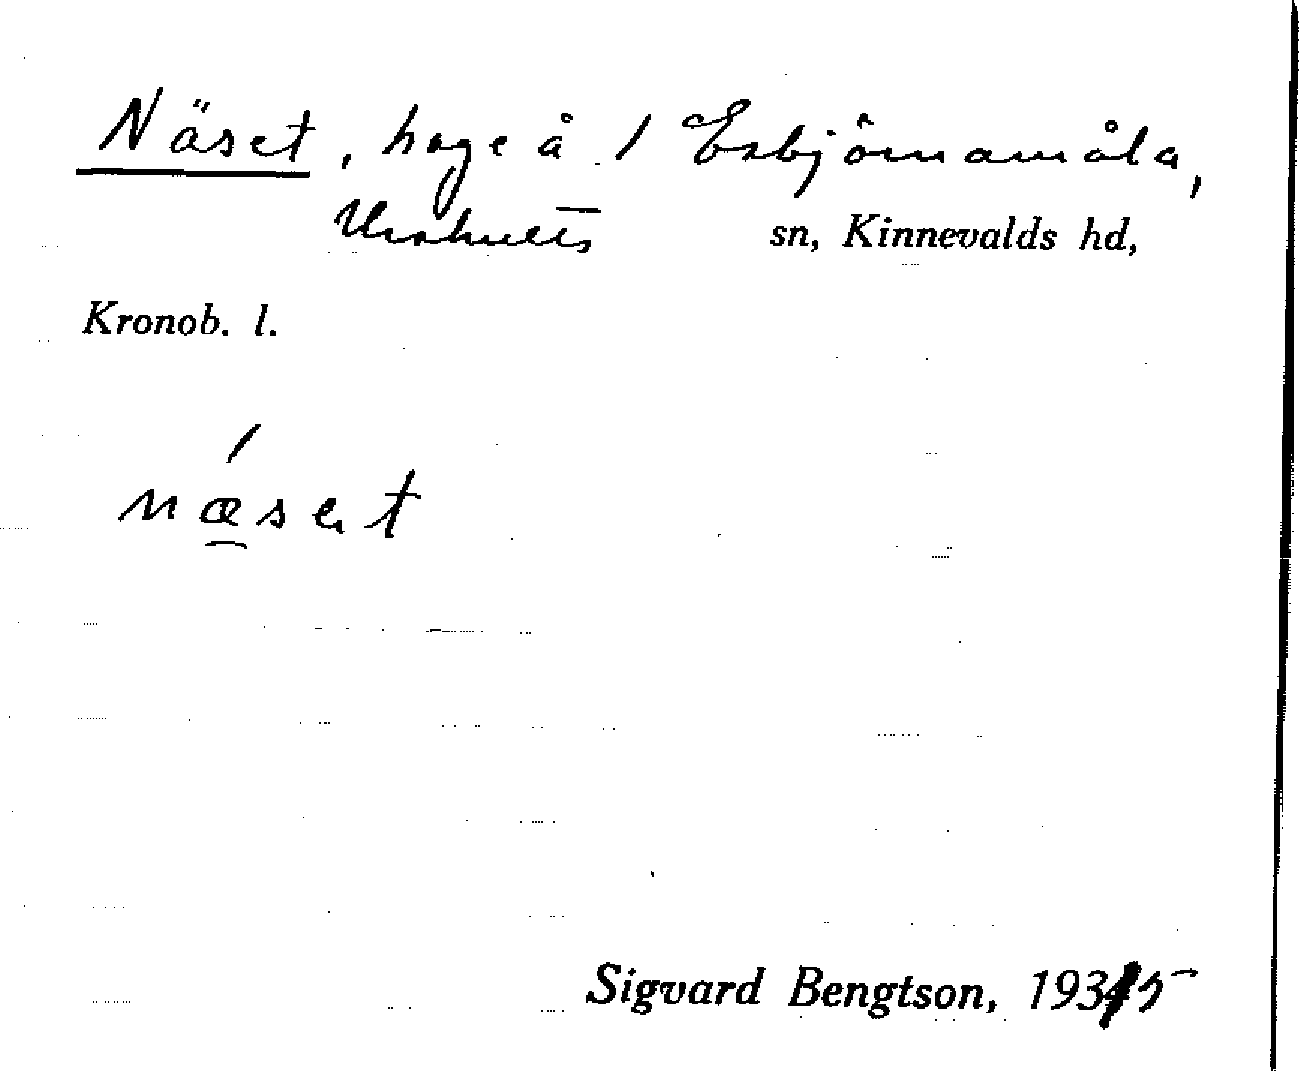 Näset, hage å 1 Esbjörnamåla,
Urshults sn, Kinnevalds hd,
Kronob. l.
næset
Sigvard Bengtson, 1935